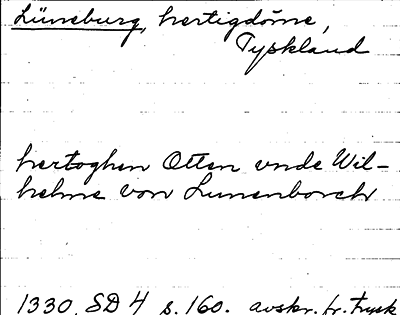 Lüneburg, hertigdöme,
Tyskland
hertoghen Otten vnde Wil-
helme von Lunenborch
1330 SD 4 s. 160. avskr. fr. tryck